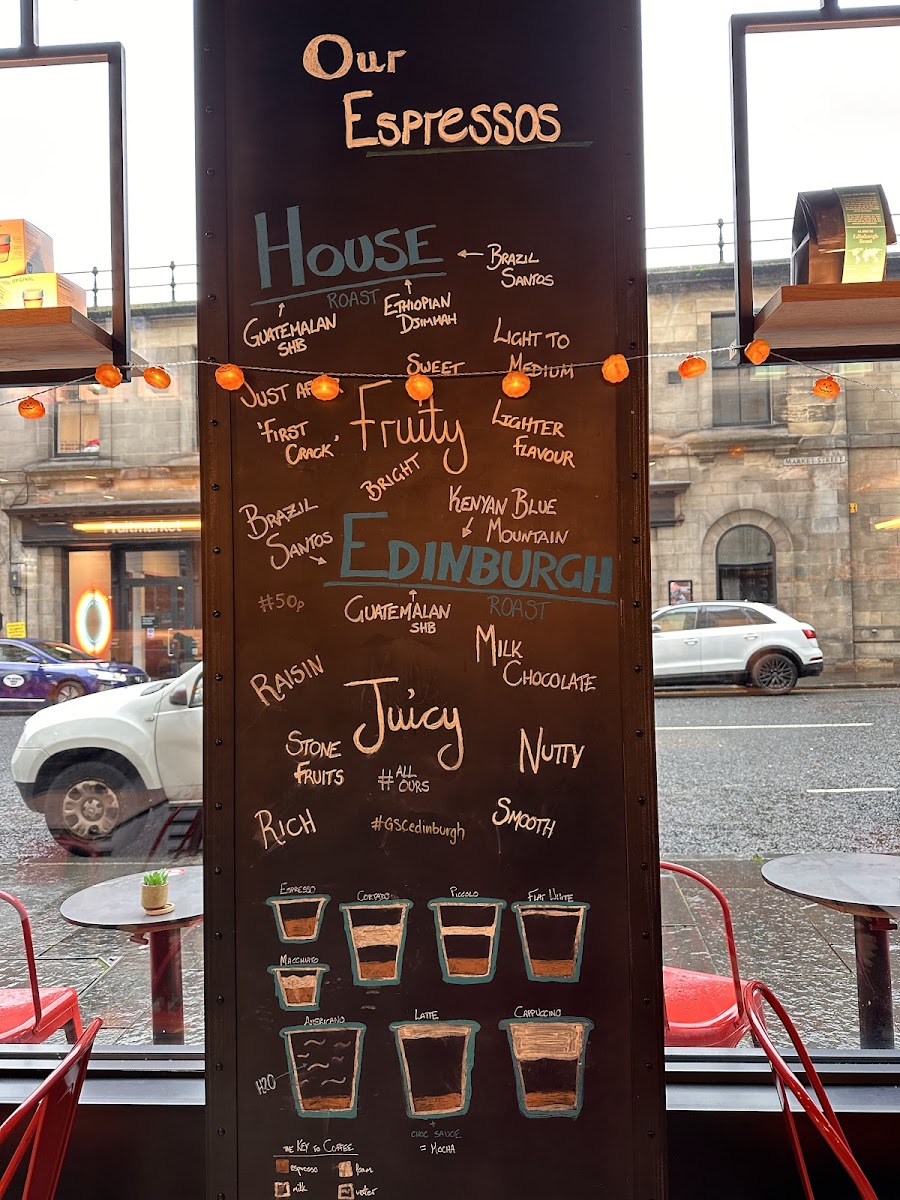 Our
Espressos
HOUSE
ROAST
BRAZIL
SANTOS
GUATEMALAN
SHB
ETHIOPIAN
DJIMMAH
LIGHT TO
MEDIUM
SWEET
JUST
'FIRST
CRACK'
Fruity
LIGHTER
FLAVOUR
BRIGHT
BRAZIL
SANTOS
KENYAN BLUE
MOUNTAIN
EDINBURGH
ROAST
#50p
GUATEMALAN
SHB
MILK
CHOCOLATE
RAISIN
Juicy
STONE
FRUITS
NUTTY
#ALL
OURS
RICH
#GSCedinburgh
SMOOTH
ESPRESSO
CORTADO
PICCOLO
FLAT WHITE
MACCHIATO
AMERICANO
LATTE
CAPPUCCINO
H2O
+
CHOC SAUCE
= MOCHA
THE KEY TO COFFEE
espresso
foam
milk
water
Fruitmarket
MARKET STREET
Edinburgh
Roast